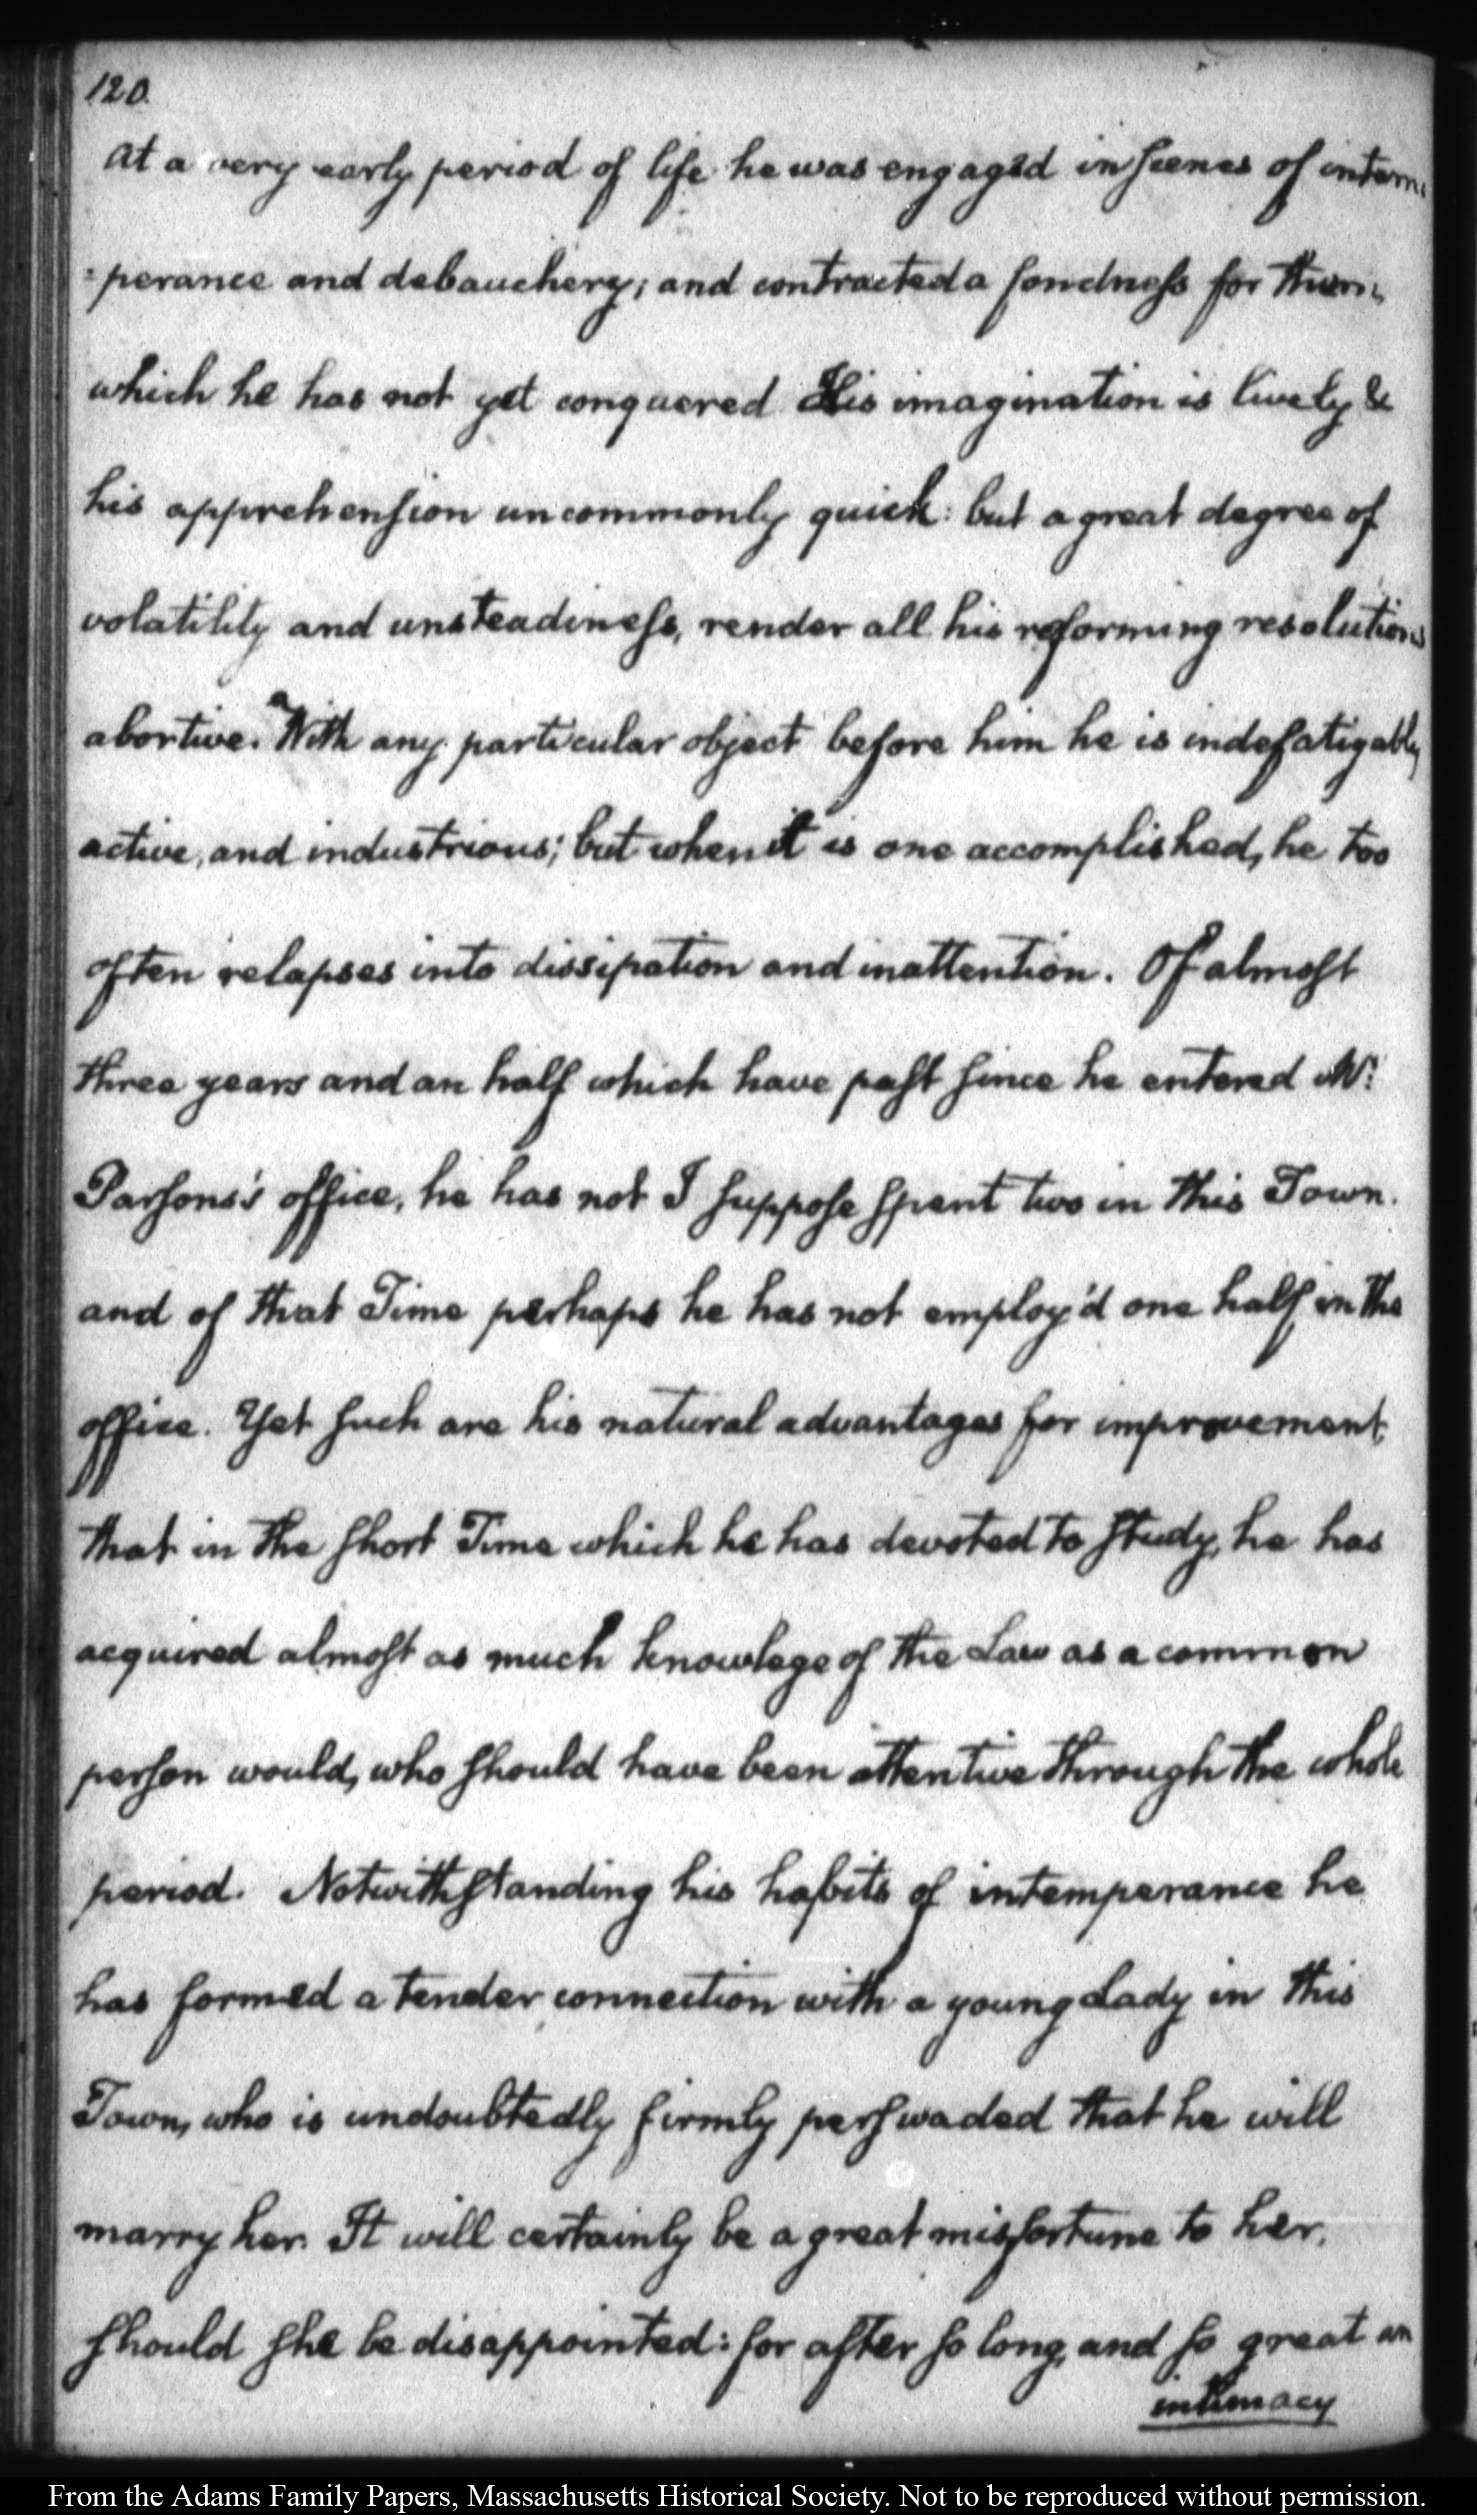 120.
At a very early period of life he was engaged in scenes of intem
:perance and debauchery; and contracted a fondness for them,
which he has not yet conquered His imagination is lively &
his apprehension uncommonly quick: but a great degree of
volatility and unsteadiness, render all his reforming resolutions
abortive. With any particular object before him he is indefatigably
active, and industrious; but when it is one accomplished, he too
often relapses into dissipation and inattention. Of almost
three years and an half which have past since he entered Mr:
Parsons's office, he has not I suppose spent two in this Town.
and of that Time perhaps he has not employ'd one half in the
office. Yet such are his natural advantages for improvement,
that in the short Time which he has devoted to study, he has
acquired almost as much knowlege of the Law as a common
person would, who should have been attentive through the whole
period. Notwithstanding his habits of intemperance he
has formed a tender connection with a young Lady in this
Town, who is undoubtedly firmly perswaded that he will
marry her. It will certainly be a great misfortune to her,
should she be disappointed: for after so long, and so great an
intimacy
From the Adams Family Papers, Massachusetts Historical Society. Not to be reproduced without permission.